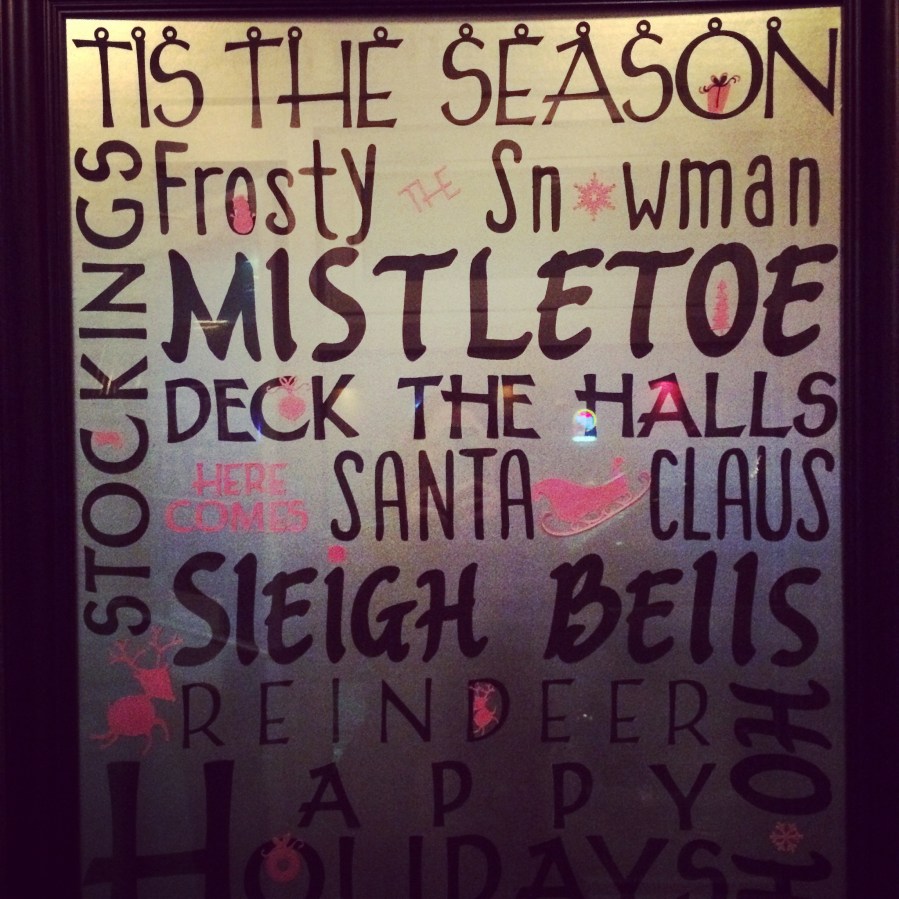 TIS THE SEASON
STOCKINGS
Frosty THE Snowman
MISTLETOE
DECK THE HALLS
HERE COMES SANTA CLAUS
SlEiGH BEllS
REINDEER
HAPPY
HOLIDAYS
HO H